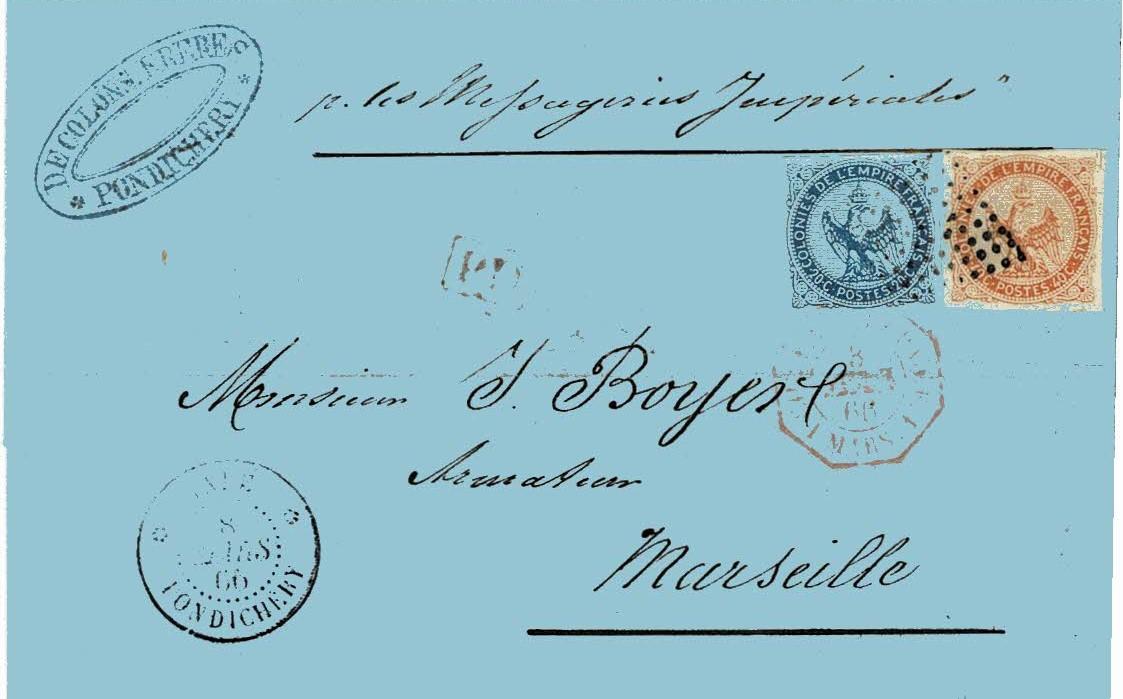 DECOLONS FRERES
* PONDICHERY *
p. les Messageries Impériales"
COLONIES DE L'EMPIRE FRANÇAIS
20 C. POSTES 20 C.
COLONIES DE L'EMPIRE FRANÇAIS
40 C. POSTES 40 C.
Monsieur J. Boyer
3
66
MARS
Armateur
Marseille
INDE
8
MARS
66
PONDICHERY